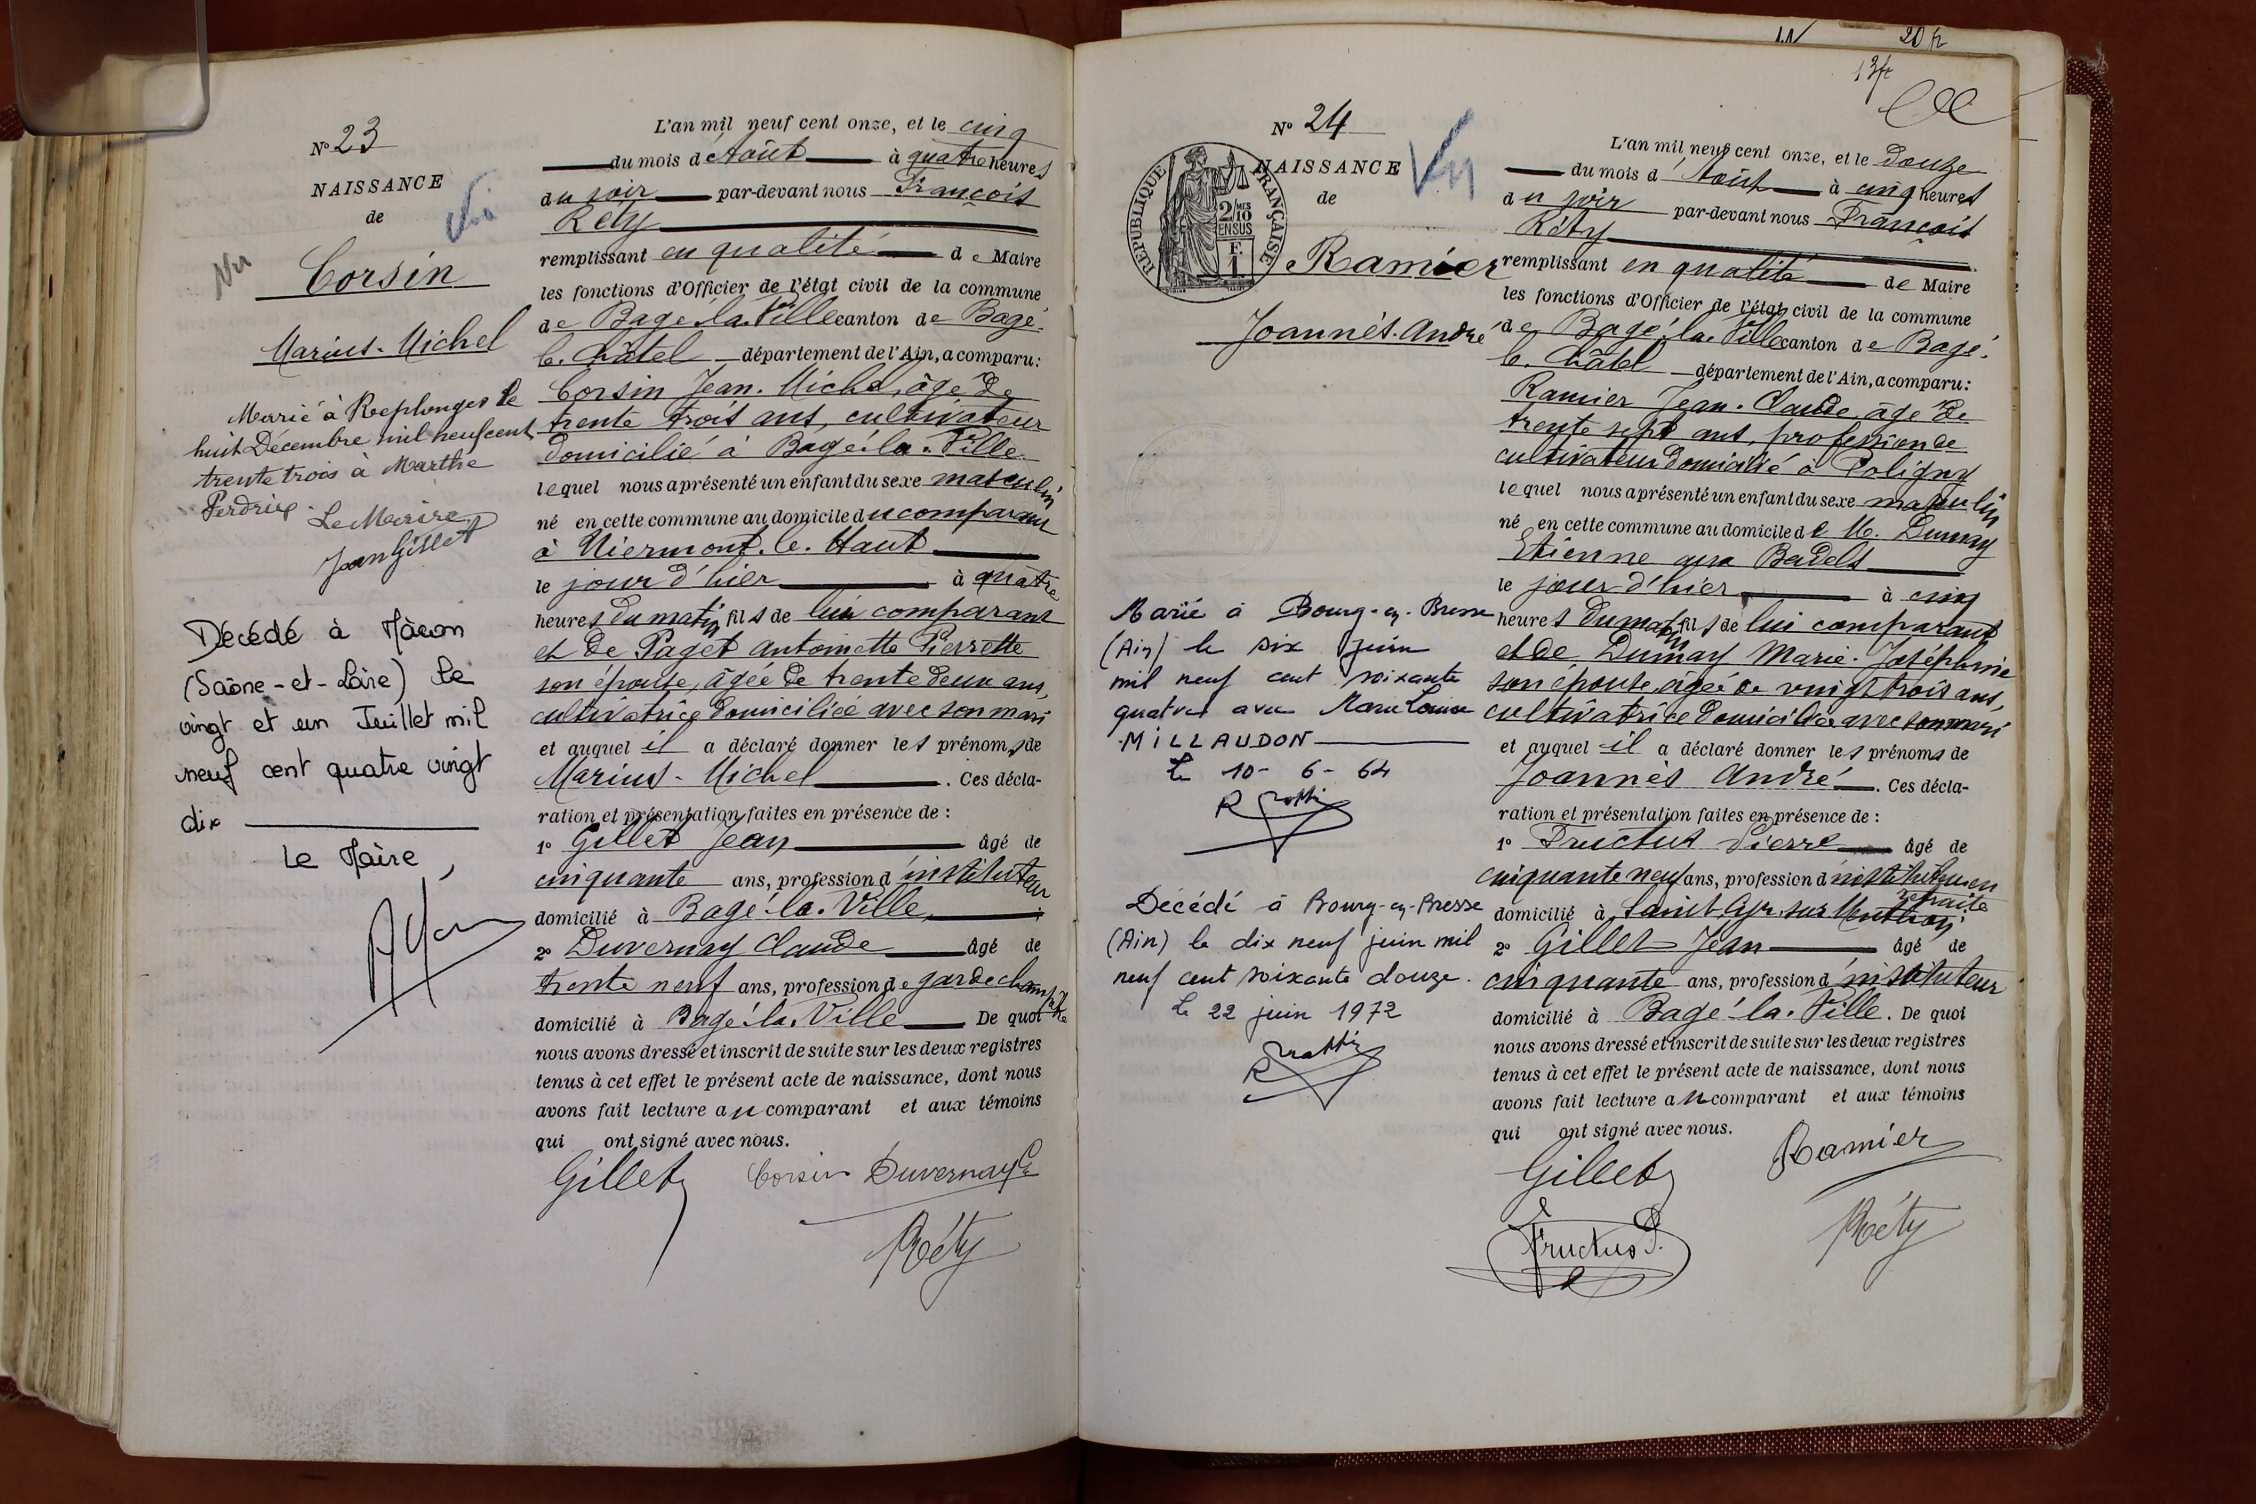 N° 23
NAISSANCE
de
Vu
Corsin
Marius-Michel
Marié à Replonges le
huit Décembre mil neuf cent
trente trois à Marthe
Perdrix.
Le Maire
Jean Gillet
Décédé à Mâcon
(Saône-et-Loire) le
vingt et un Juillet mil
neuf cent quatre vingt
dix
Le Maire,
L'an mil neuf cent onze, et le cinq
du mois d'Août à quatre heures
du soir par-devant nous François
Réty
remplissant en qualité de Maire
les fonctions d'Officier de l'état civil de la commune
de Bagé-la-Ville canton de Bagé-
le-Châtel département de l'Ain, a comparu:
Corsin Jean-Michel, âgé de
trente trois ans, cultivateur
domicilié à Bagé-la-Ville
lequel nous a présenté un enfant du sexe masculin
né en cette commune au domicile du comparant
à Niermont-le-Haut
le jour d'hier à quatre
heures du matin fils de lui comparant
et de Paget Antoinette Pierrette
son épouse, âgée de trente deux ans,
cultivatrice domiciliée avec son mari
et auquel il a déclaré donner les prénoms de
Marius-Michel. Ces décla-
ration et présentation faites en présence de :
1° Gillet Jean âgé de
cinquante ans, profession d'instituteur
domicilié à Bagé-la-Ville ;
2° Duvernay Claude âgé de
trente neuf ans, profession de garde champêtre
domicilié à Bagé-la-Ville De quoi
nous avons dressé et inscrit de suite sur les deux registres
tenus à cet effet le présent acte de naissance, dont nous
avons fait lecture au comparant et aux témoins
qui ont signé avec nous.
Gillet Corsin Duvernay C.
Réty
20 fr
13 fr
N° 24
NAISSANCE
de
Vu
REPUBLIQUE FRANÇAISE
2/10 MES
EN SUS
F.
1
Ramier
Joannès-André
Marié à Bourg-en-Bresse
(Ain) le six juin
mil neuf cent soixante
quatre avec Marie Louise
MILLAUDON
Le 10-6-64
Décédé à Bourg-en-Bresse
(Ain) le dix neuf juin mil
neuf cent soixante douze.
Le 22 juin 1972
L'an mil neuf cent onze, et le douze
du mois d'Août à cinq heures
du soir par-devant nous François
Réty
remplissant en qualité de Maire
les fonctions d'Officier de l'état civil de la commune
de Bagé-la-Ville canton de Bagé-
le-Châtel département de l'Ain, a comparu:
Ramier Jean-Claude âgé de
trente sept ans, profession de
cultivateur domicilié à Poligny
lequel nous a présenté un enfant du sexe masculin
né en cette commune au domicile de M. Dumay
Etienne aux Badels
le jour d'hier à cinq
heures du matin fils de lui comparant
et de Dumay Marie-Joséphine
son épouse, âgée de vingt trois ans,
cultivatrice domiciliée avec son mari
et auquel il a déclaré donner les prénoms de
Joannès André. Ces décla-
ration et présentation faites en présence de :
1° Fructus Pierre âgé de
cinquante neuf ans, profession d'instituteur en
retraite
domicilié à Saint Cyr sur Menthon;
2° Gillet Jean âgé de
cinquante ans, profession d'instituteur
domicilié à Bagé-la-Ville. De quoi
nous avons dressé et inscrit de suite sur les deux registres
tenus à cet effet le présent acte de naissance, dont nous
avons fait lecture au comparant et aux témoins
qui ont signé avec nous.
Gillet Ramier
Fructus P. Réty